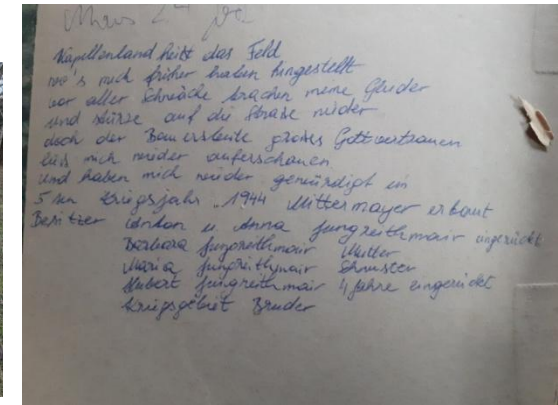 Kapellenland heißt das Feld
wo's mich früher haben hingestellt
vor aller Schwäche brachen meine Glieder
und stürze auf die Straße nieder
doch der Bauersleute großes Gottvertrauen
ließ mich wieder auferschauen
und haben mich wieder gewürdigt im
5 ten Kriegsjahr 1944 Mittermayer erbaut
Besitzer Anton u. Anna Jungreithmair eingerückt
Barbara Jungreithmair Mutter
Maria Jungreithmair Schwester
Hubert Jungreithmair 4 Jahre eingerückt
Kriegsgebiet Bruder